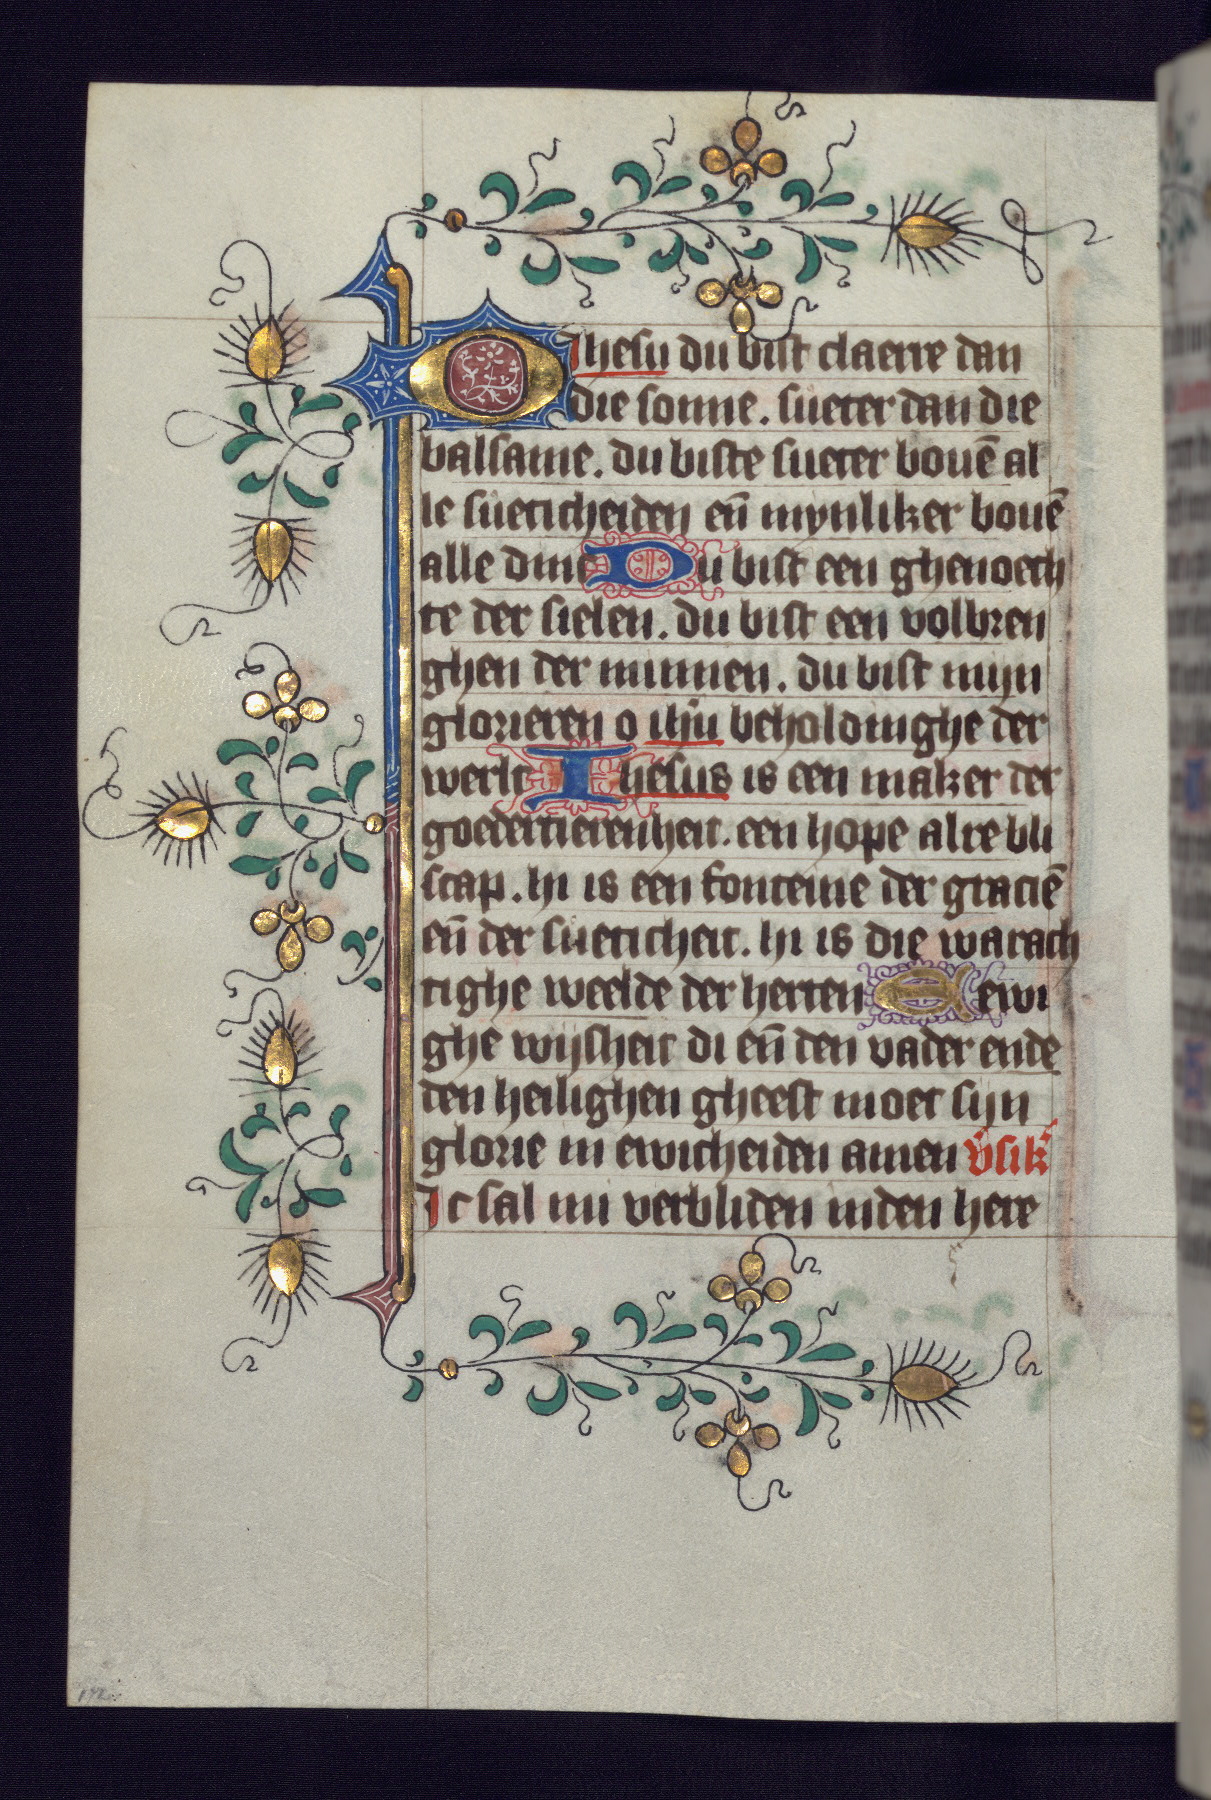 O Jhesu du bist claerre dan
die sonne. sueter dan die
balsame. du biste sueter bouē al
le sueticheiden eñ mynliker bouē
alle dinc Du bist een ghenoech
te der sielen. du bist een volbren
ghen der minnen. du bist mijn
glorieren o ihu beholdinghe der
werlt Ihesus is een maker der
goedertierenheit. een hope alre bli
scap. hi is een fonteine der graciē
eñ der sueticheit. hi is die warach
tighe weelde der herten O ewi
ghe wijsheit di eñ den vader ende
den heilighen gheest moet sijn
glorie in ewicheiden amen v̄sik̄
Ic sal mi verbliden inden here